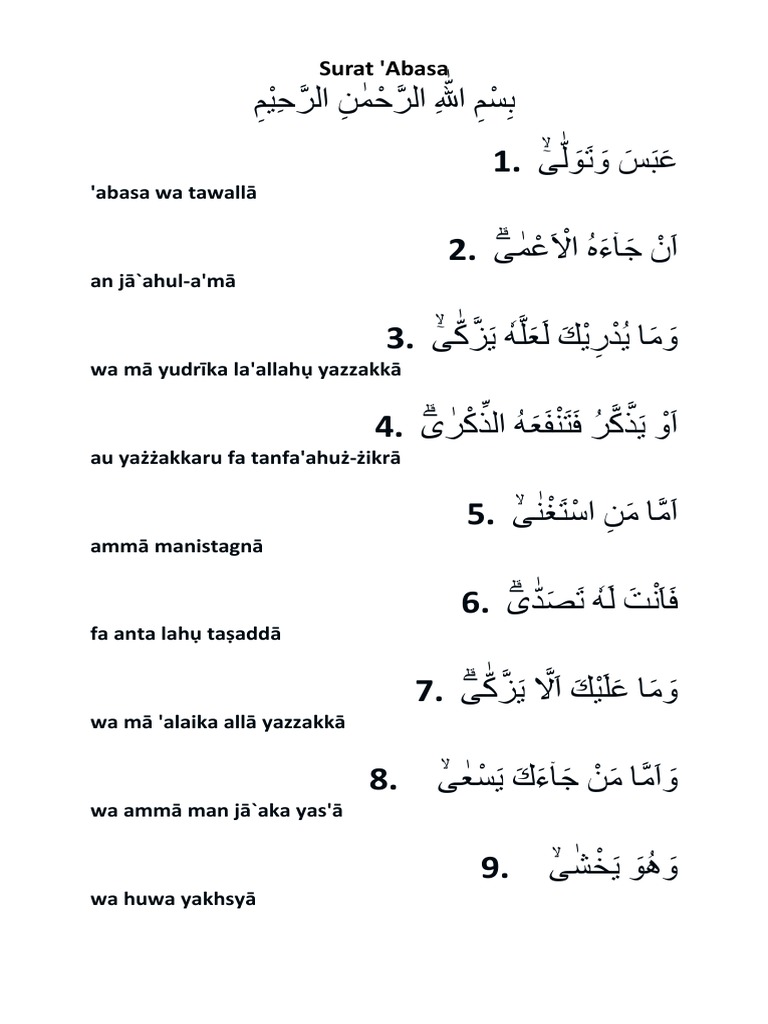 Surat 'Abasa
بِسْمِ اللّٰهِ الرَّحْمٰنِ الرَّحِيْمِ
1. عَبَسَ وَتَوَلّٰىٓۙ
'abasa wa tawallā
2. اَنْ جَاۤءَهُ الْاَعْمٰىۗ
an jā`ahul-a'mā
3. وَمَا يُدْرِيْكَ لَعَلَّهٗ يَزَّكّٰىٓۙ
wa mā yudrīka la'allahụ yazzakkā
4. اَوْ يَذَّكَّرُ فَتَنْفَعَهُ الذِّكْرٰىۗ
au yażżakkaru fa tanfa'ahuż-żikrā
5. اَمَّا مَنِ اسْتَغْنٰىۙ
ammā manistagnā
6. فَاَنْتَ لَهٗ تَصَدّٰىۗ
fa anta lahụ taṣaddā
7. وَمَا عَلَيْكَ اَلَّا يَزَّكّٰىۗ
wa mā 'alaika allā yazzakkā
8. وَاَمَّا مَنْ جَاۤءَكَ يَسْعٰىۙ
wa ammā man jā`aka yas'ā
9. وَهُوَ يَخْشٰىۙ
wa huwa yakhsyā